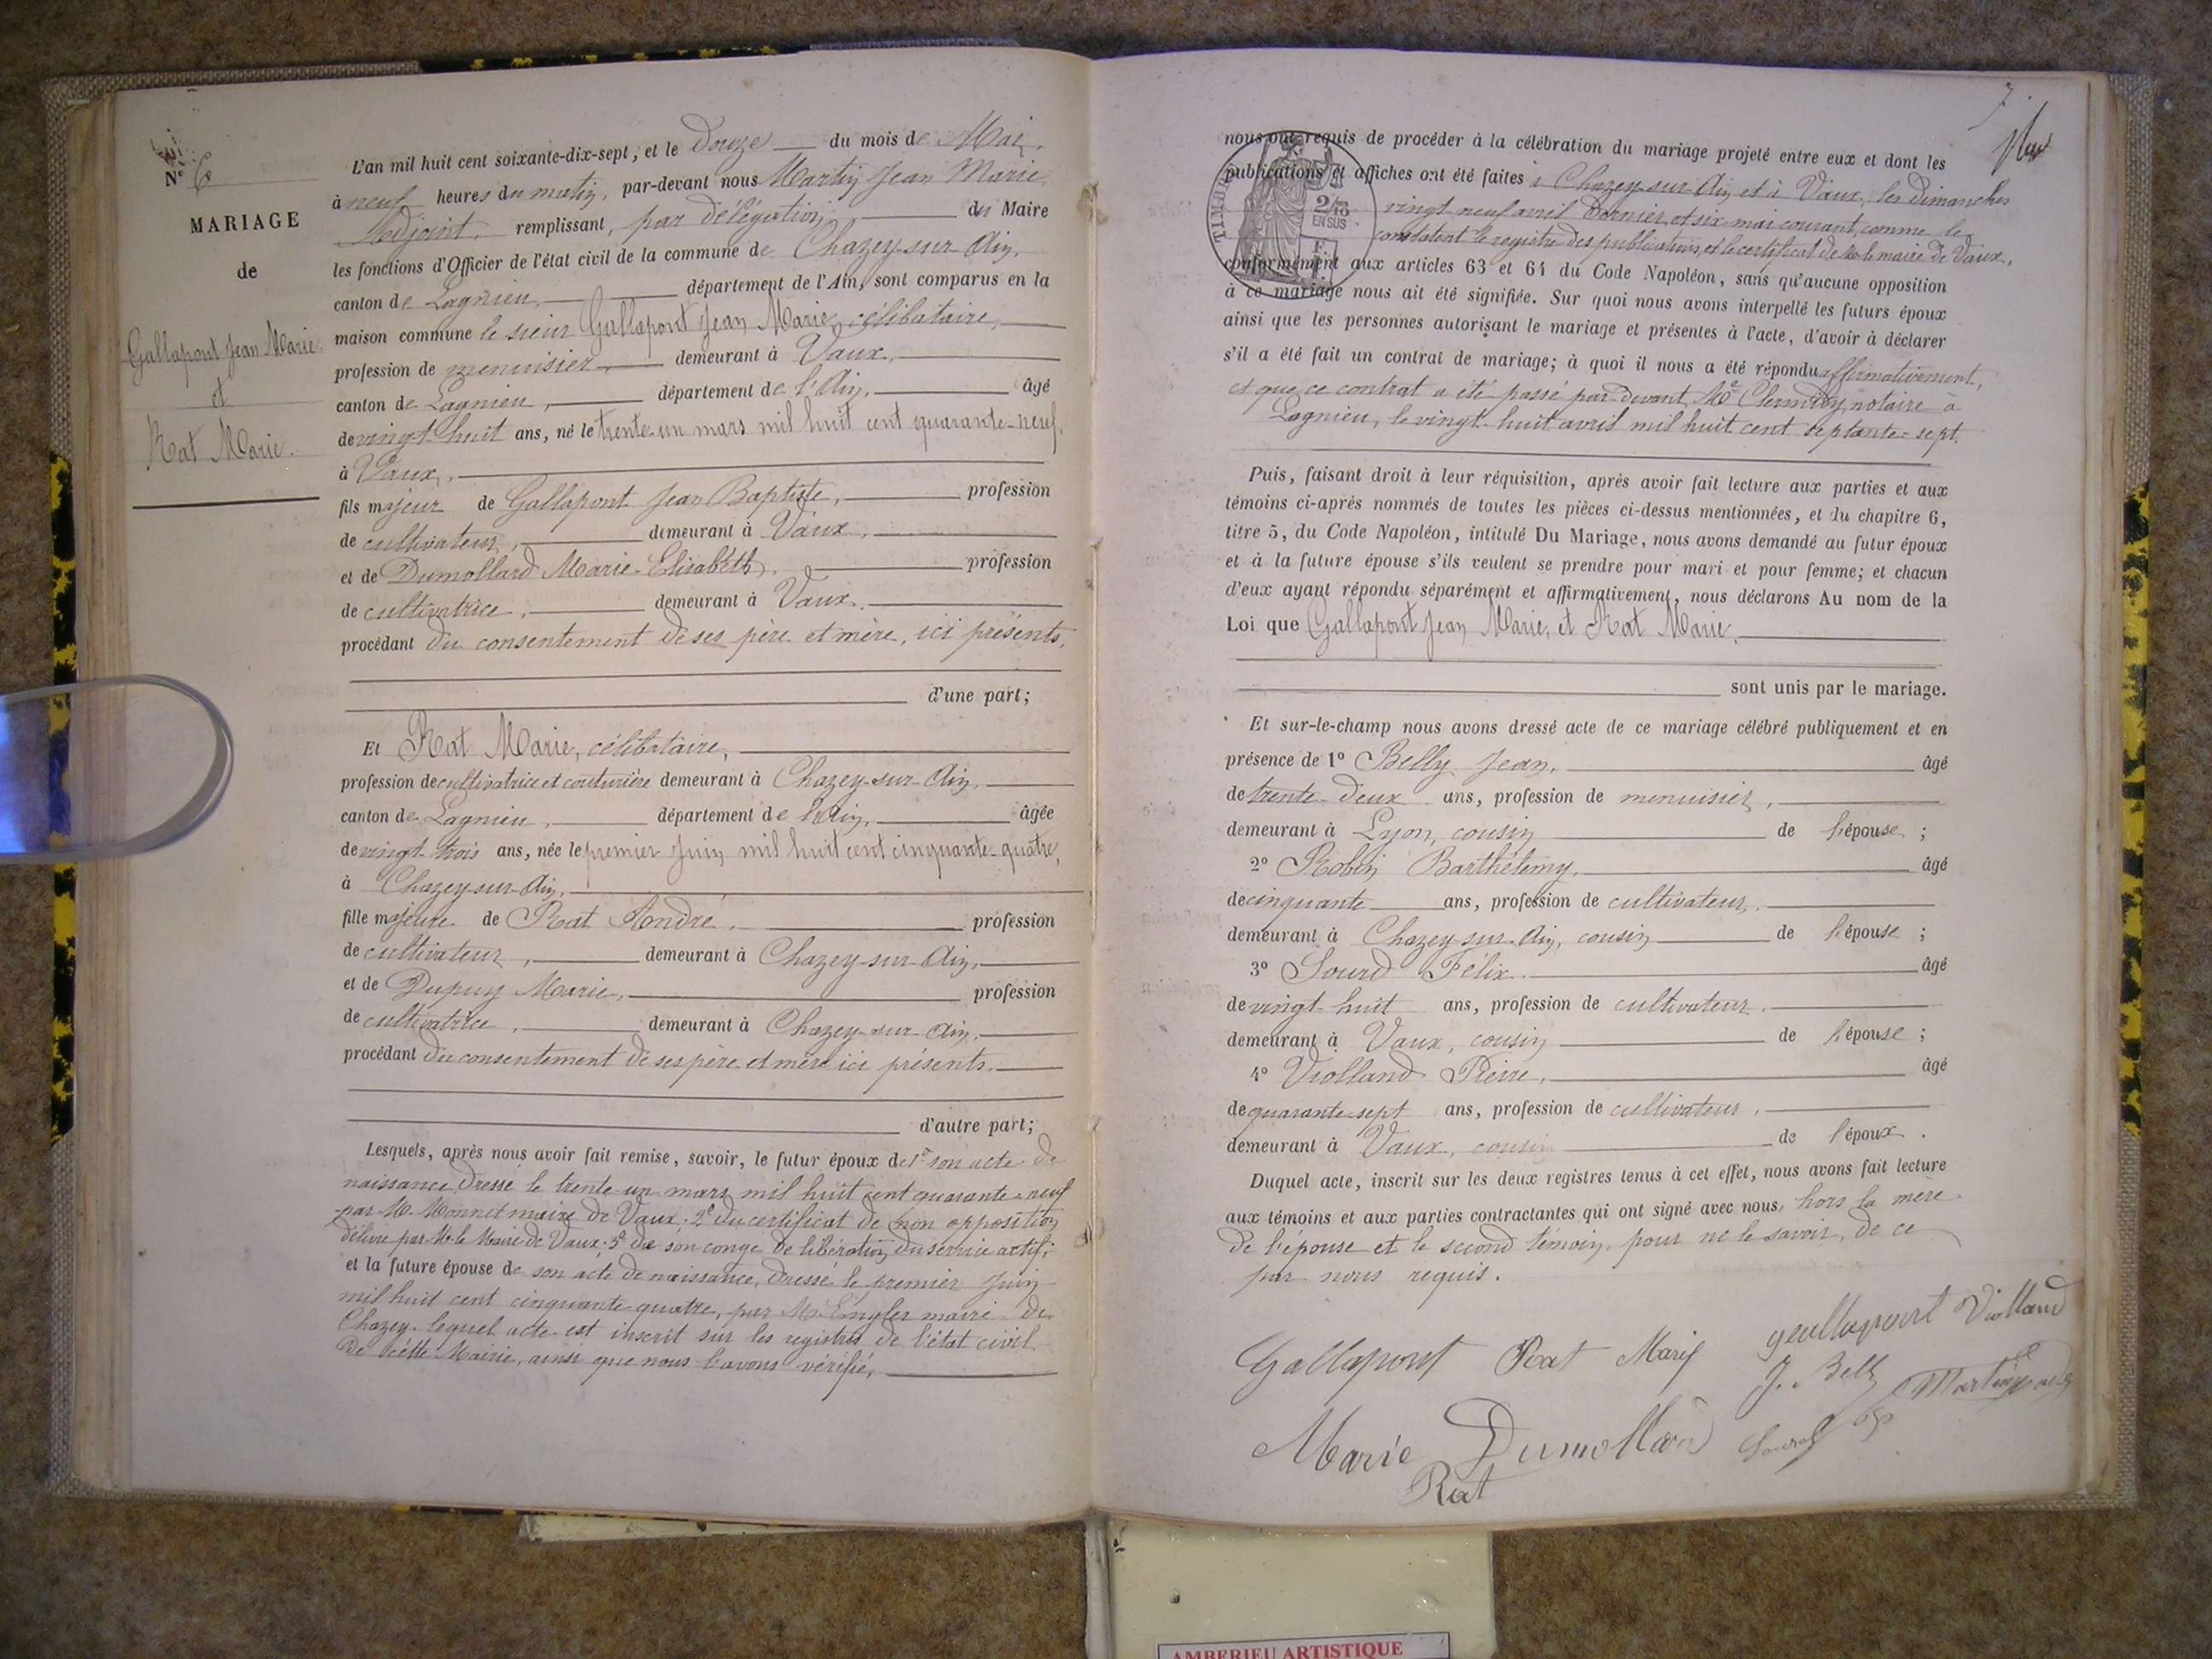 Nº 6
MARIAGE
de
Gallapont Jean Marie
et
Rat Marie.
L'an mil huit cent soixante-dix-sept, et le Douze du mois de Mai,
à neuf heures du matin, par-devant nous Martin Jean Marie
Adjoint, remplissant, par délégation, du Maire
les fonctions d'Officier de l'état civil de la commune de Chazey-sur-Ain,
canton de Lagnieu, département de l'Ain, sont comparus en la
maison commune le sieur Gallapont Jean Marie, célibataire,
profession de menuisier, demeurant à Vaux,
canton de Lagnieu, département de l'Ain, âgé
de vingt-huit ans, né le trente-un mars mil huit cent quarante-neuf,
à Vaux,
fils majeur de Gallapont Jean Baptiste, profession
de cultivateur, demeurant à Vaux,
et de Dumollard Marie-Elisabeth, profession
de cultivatrice, demeurant à Vaux,
procédant du consentement de ses père et mère, ici présents,
d'une part;
Et Rat Marie, célibataire,
profession de cultivatrice et couturière demeurant à Chazey-sur-Ain,
canton de Lagnieu, département de l'Ain, âgée
de vingt-trois ans, née le premier Juin mil huit cent cinquante-quatre,
à Chazey-sur-Ain,
fille majeure de Rat André, profession
de cultivateur, demeurant à Chazey-sur-Ain,
et de Dupuy Marie, profession
de cultivatrice, demeurant à Chazey-sur-Ain,
procédant du consentement de ses père et mère ici présents.
d'autre part;
Lesquels, après nous avoir fait remise, savoir, le futur époux de 1º son acte de
naissance, dressé le trente-un mars mil huit cent quarante-neuf
par M. Monnet maire de Vaux; 2º du certificat de non opposition
délivré par M. le Maire de Vaux; 3º de son congé de libération du service actif;
et la future épouse de son acte de naissance, dressé le premier Juin
mil huit cent cinquante-quatre, par M. maire de
Chazey, lequel acte est inscrit sur les registres de l'état civil
de cette Mairie, ainsi que nous l'avons vérifié,
7
nous ont requis de procéder à la célébration du mariage projeté entre eux et dont les
publications et affiches ont été faites à Chazey-sur-Ain et à Vaux, les dimanches
vingt neuf avril dernier et six mai courant, comme le
constatent le registre des publications, et le certificat de M. le maire de Vaux,
conformément aux articles 63 et 64 du Code Napoléon, sans qu'aucune opposition
à ce mariage nous ait été signifiée. Sur quoi nous avons interpellé les futurs époux
ainsi que les personnes autorisant le mariage et présentes à l'acte, d'avoir à déclarer
s'il a été fait un contrat de mariage; à quoi il nous a été répondu affirmativement,
et que ce contrat a été passé par-devant Me notaire à
Lagnieu, le vingt-huit avril mil huit cent septante-sept.
TIMBRE
2/10
EN SUS
Puis, faisant droit à leur réquisition, après avoir fait lecture aux parties et aux
témoins ci-après nommés de toutes les pièces ci-dessus mentionnées, et du chapitre 6,
titre 5, du Code Napoléon, intitulé Du Mariage, nous avons demandé au futur époux
et à la future épouse s'ils veulent se prendre pour mari et pour femme; et chacun
d'eux ayant répondu séparément et affirmativement, nous déclarons Au nom de la
Loi que Gallapont Jean Marie, et Rat Marie,
sont unis par le mariage.
Et sur-le-champ nous avons dressé acte de ce mariage célébré publiquement et en
présence de 1º Belly Jean, âgé
de trente-deux ans, profession de menuisier,
demeurant à Lyon, cousin de l'épouse;
2º Robin Barthélemy, âgé
de cinquante ans, profession de cultivateur,
demeurant à Chazey-sur-Ain, cousin de l'épouse;
3º Sourd Félix, âgé
de vingt-huit ans, profession de cultivateur,
demeurant à Vaux, cousin de l'épouse;
4º Violland Pierre, âgé
de quarante-sept ans, profession de cultivateur,
demeurant à Vaux, cousin de l'époux.
Duquel acte, inscrit sur les deux registres tenus à cet effet, nous avons fait lecture
aux témoins et aux parties contractantes qui ont signé avec nous, hors la mère
de l'épouse et le second témoin, pour ne le savoir, de ce
par nous requis.
Gallapont Rat Marie gallapont Violland
J. Belly Martin
Marie Dumollard Sourd
Rat
AMBERIEU ARTISTIQUE